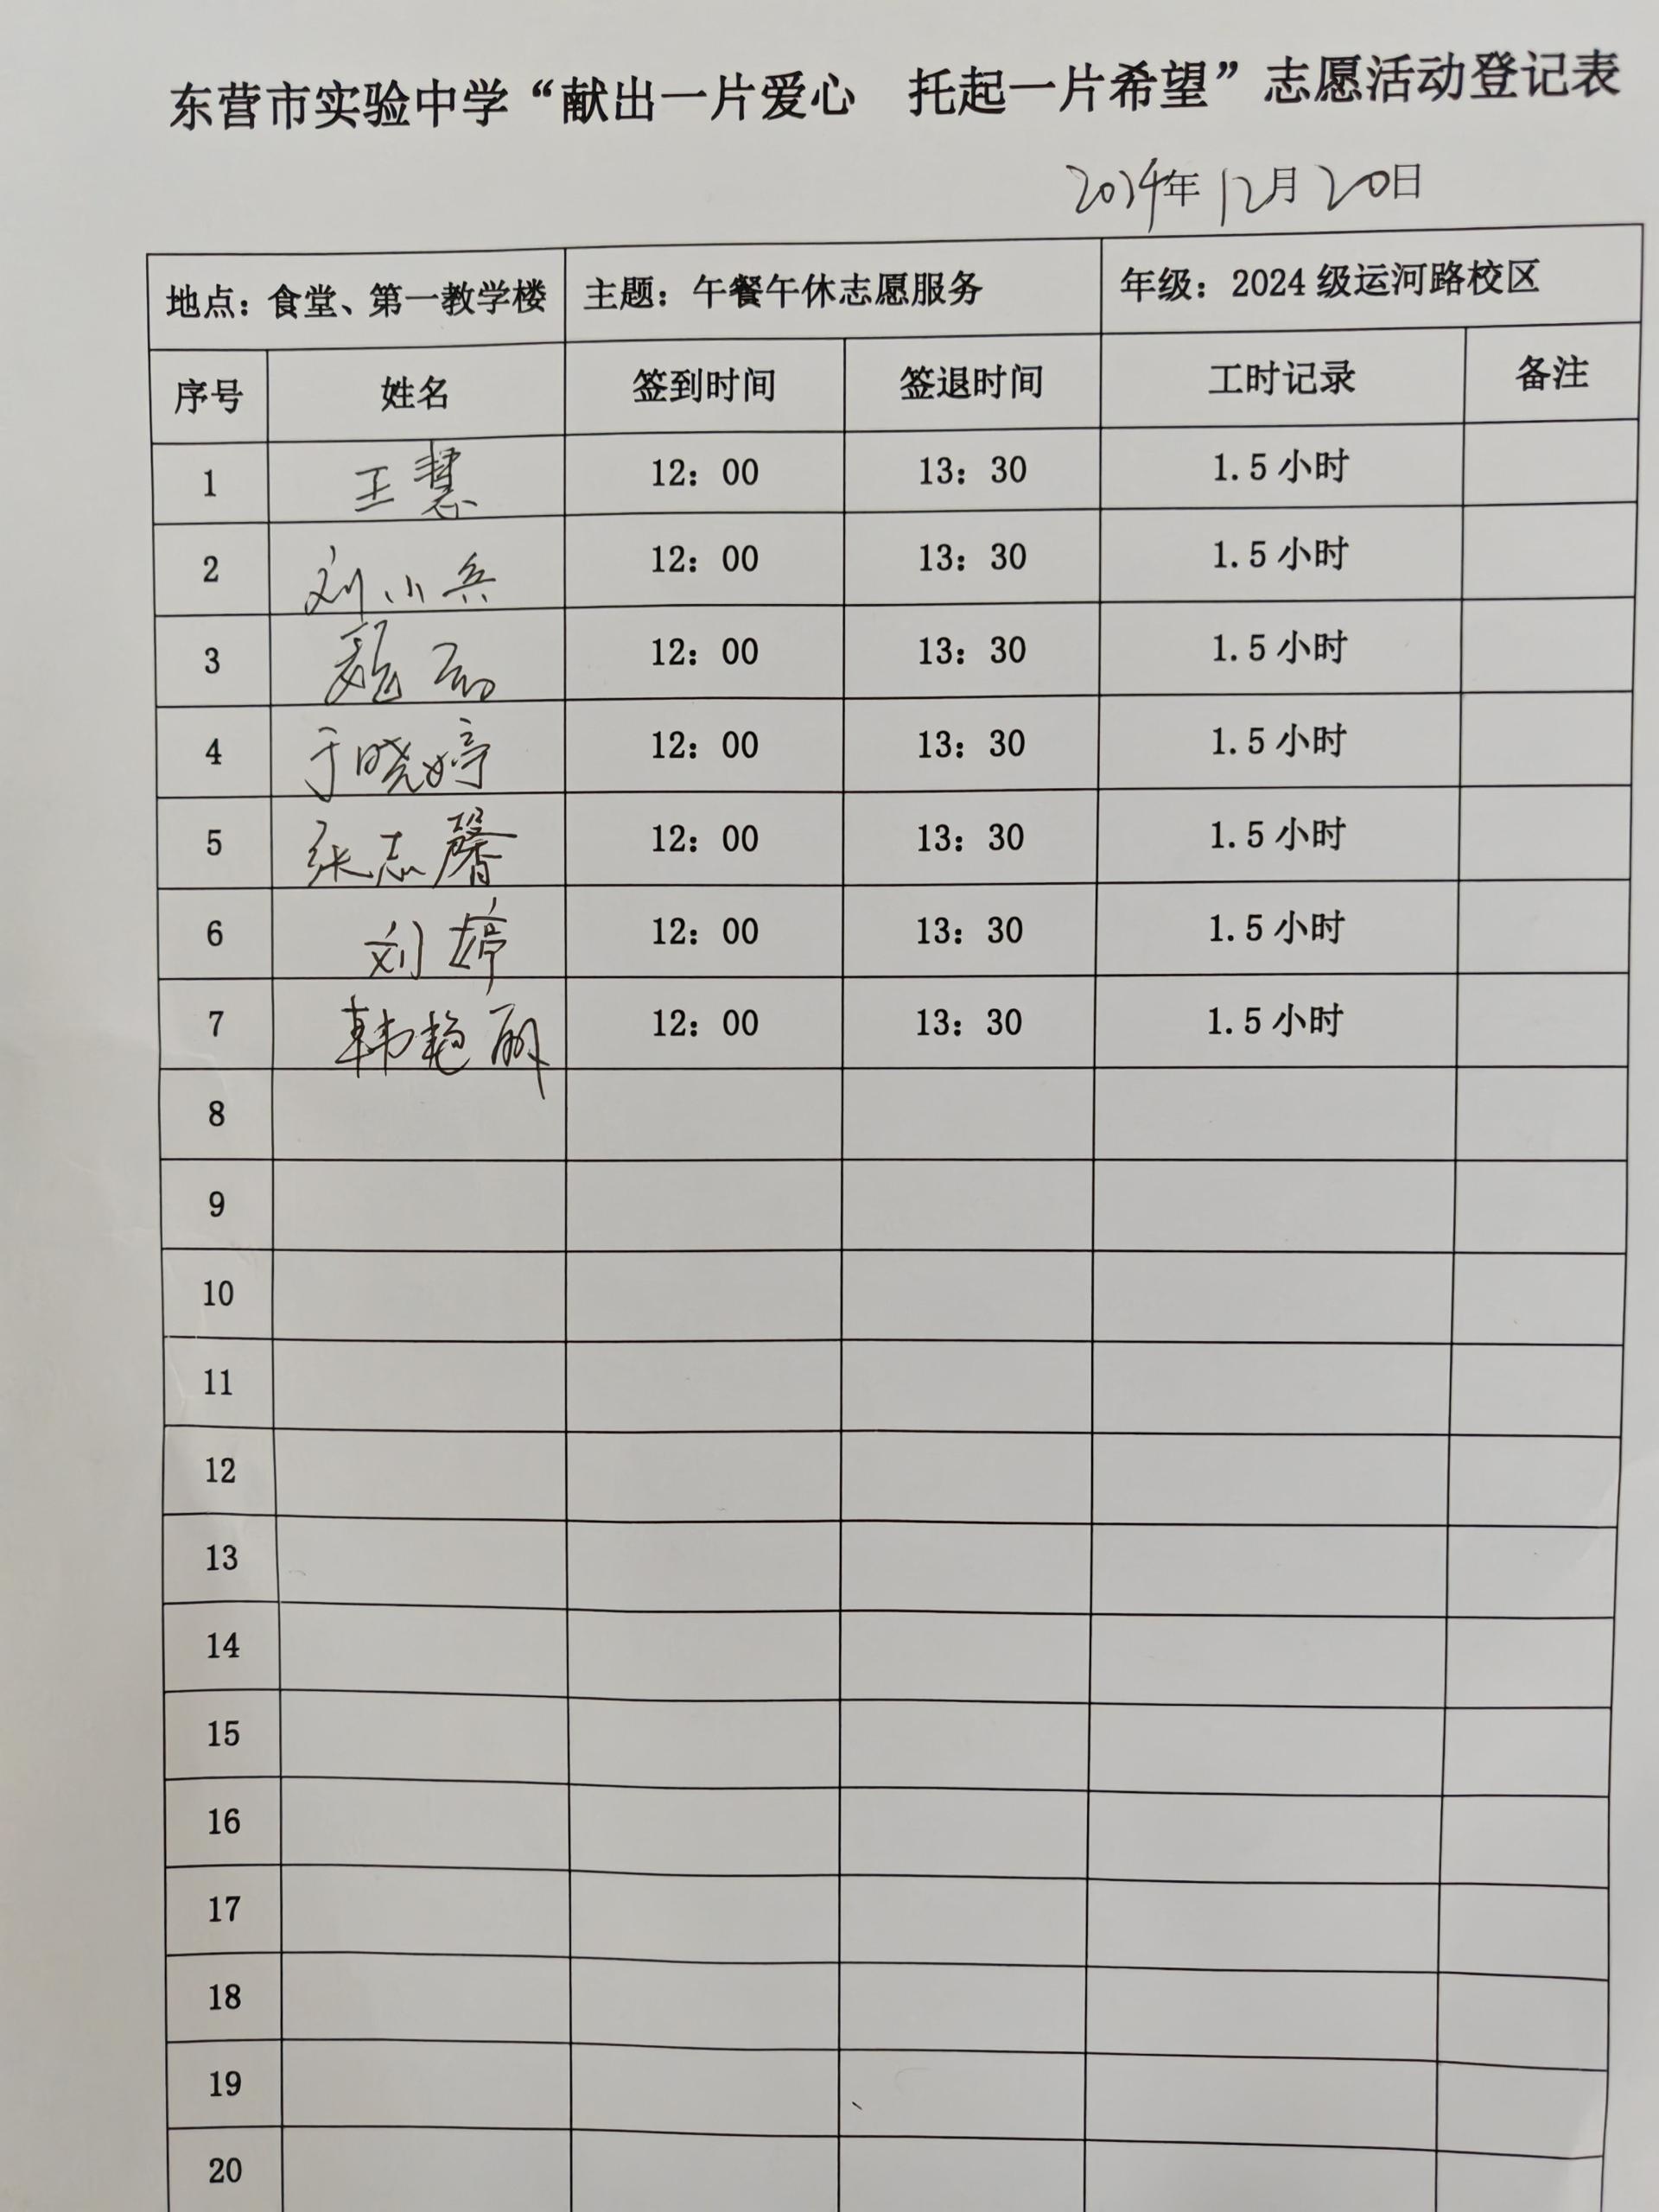 东营市实验中学“献出一片爱心 托起一片希望”志愿活动登记表
2024年12月20日
地点：食堂、第一教学楼 主题：午餐午休志愿服务 年级：2024级运河路校区
序号 姓名 签到时间 签退时间 工时记录 备注
1 王慧 12：00 13：30 1.5小时
2 刘小兵 12：00 13：30 1.5小时
3 12：00 13：30 1.5小时
4 于晓婷 12：00 13：30 1.5小时
5 张志馨 12：00 13：30 1.5小时
6 刘婷 12：00 13：30 1.5小时
7 韩艳丽 12：00 13：30 1.5小时
8
9
10
11
12
13
14
15
16
17
18
19
20